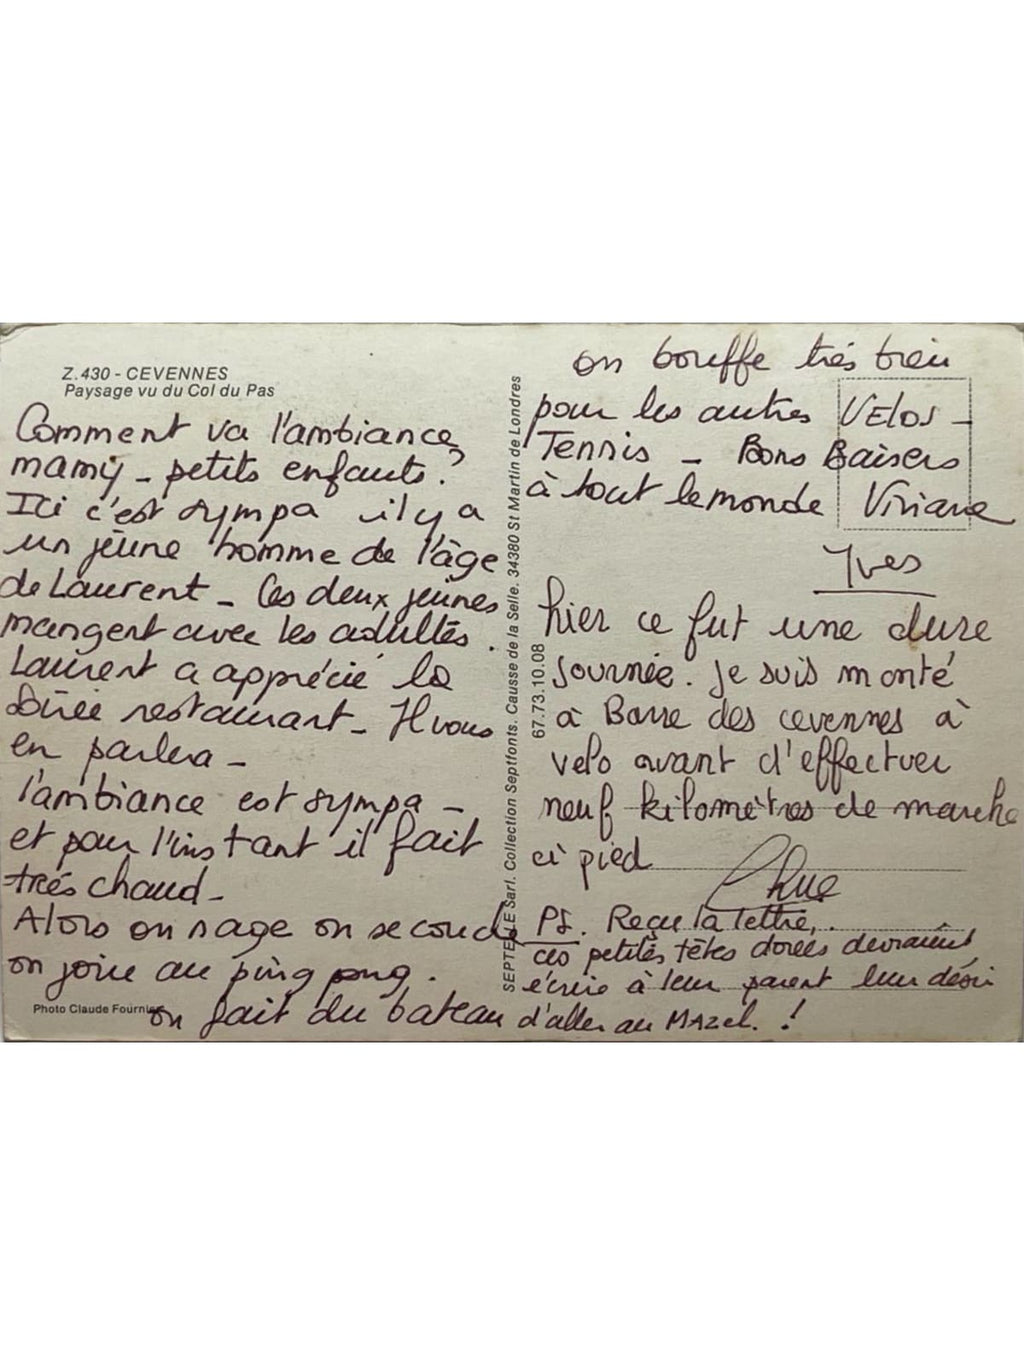 Z.430 - CEVENNES
Paysage vu du Col du Pas
Comment va l'ambiance
mamy - petits enfants ?
Ici c'est sympa il y a
un jeune homme de l'âge
de Laurent - Ces deux jeunes
mangent avec les adultes.
Laurent a apprécié la
Soirée restaurant - Il vous
en parlera -
l'ambiance est sympa -
et pour l'instant il fait
trés chaud -
Alors on nage on se couche
on joue au ping pong.
on fait du bateau
Photo Claude Fournier
SEPTEELE Sarl. Collection Septfonts. Causse de la Selle. 34380 St Martin de Londres
67.73.10.08
on bouffe très bien
pour les autres VELOS -
Tennis - Bons Baisers
à tout le monde Viviane
Yves
hier ce fut une dure
journée. Je suis monté
à Barre des cevennes à
velo avant d'effectuer
neuf kilomètres de marche
à pied
PS. Reçu la lettre,
ces petites têtes dorées devraient
écrire à leur parent leur désir
d'aller au MAZEL. !